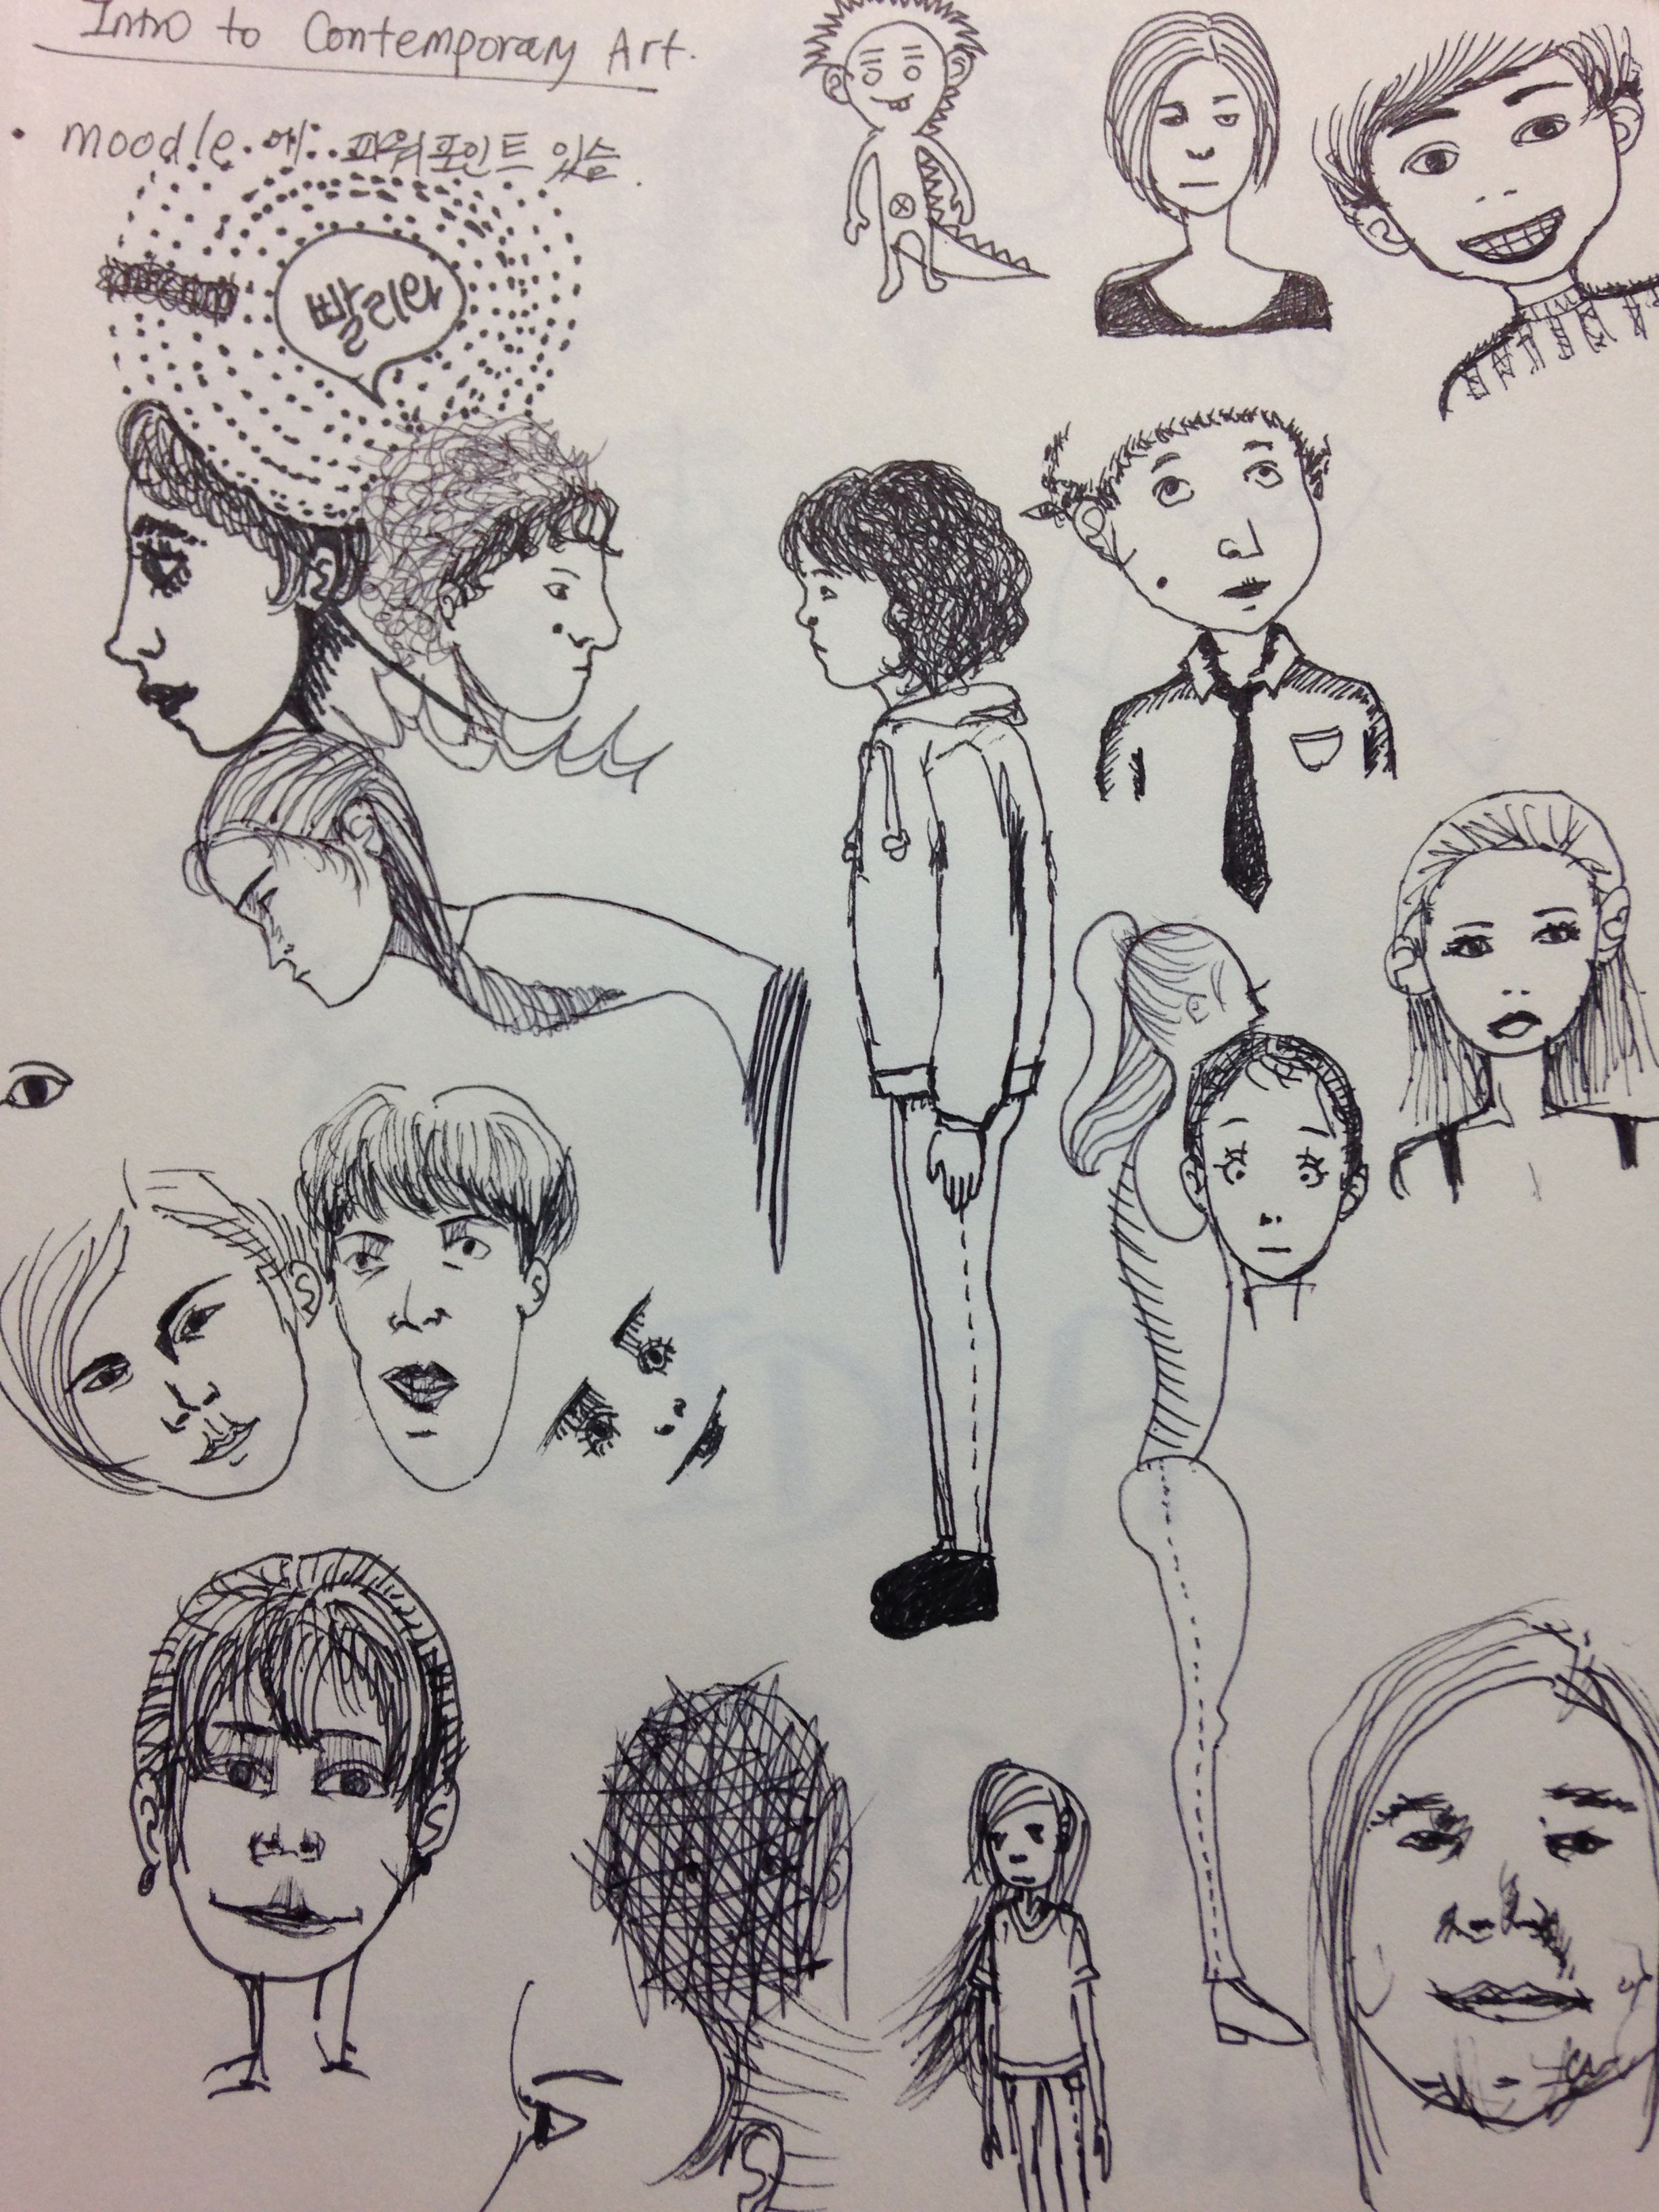 Intro to Contemporary Art.
• moodle.에.. 파워포인트 있슴.
빨리와